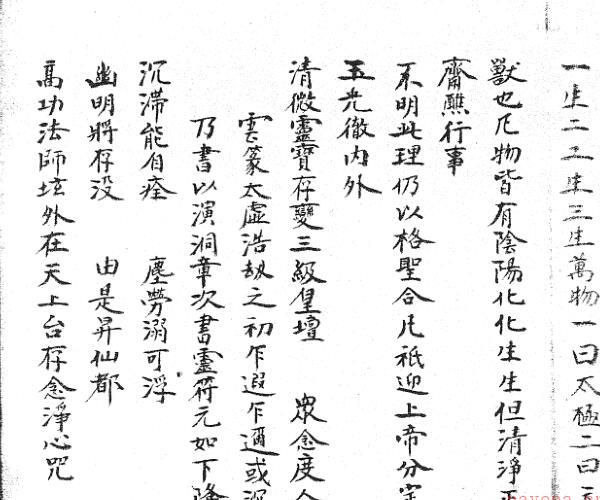 一生二二生三生萬物一曰太極二曰
獸也凡物皆有陰陽化化生生但清淨
齋醮行事
不明此理仍以格聖合凡祇迎上帝分
玉光徹內外
清微靈寶存變三級皇壇 眾念度
雲篆太虛浩劫之初乍遐乍邇或沉
乃書以演洞章次書靈符元如下降
沉滯能自痊 塵勞溺可浮
幽明將存没 由是昇仙都
高功法師壇外在天上台存念淨心咒